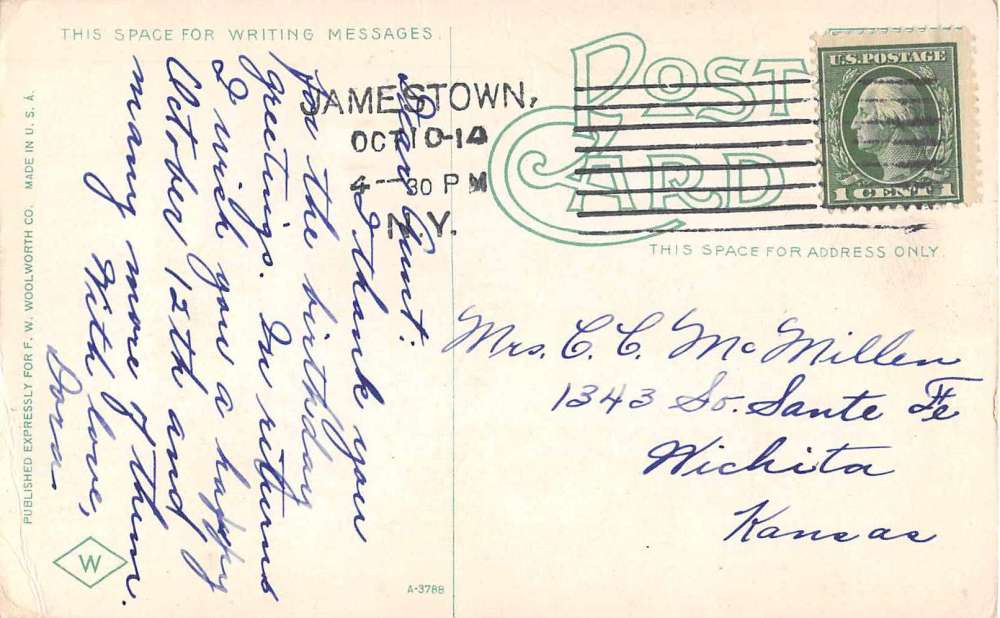 THIS SPACE FOR WRITING MESSAGES.
POST CARD
THIS SPACE FOR ADDRESS ONLY.
U.S. POSTAGE
1 CENT 1
JAMESTOWN,
OCT 10-14
4-30 PM
N.Y.
Dear Aunt:
I thank you
for the birthday
greetings. In return
I wish you a happy
October 12th and
many more of them.
With love,
Dora.
Mrs. C. C. McMillen
1343 So. Sante Fe
Wichita
Kansas
PUBLISHED EXPRESSLY FOR F. W. WOOLWORTH CO. MADE IN U. S. A.
W
A-3788